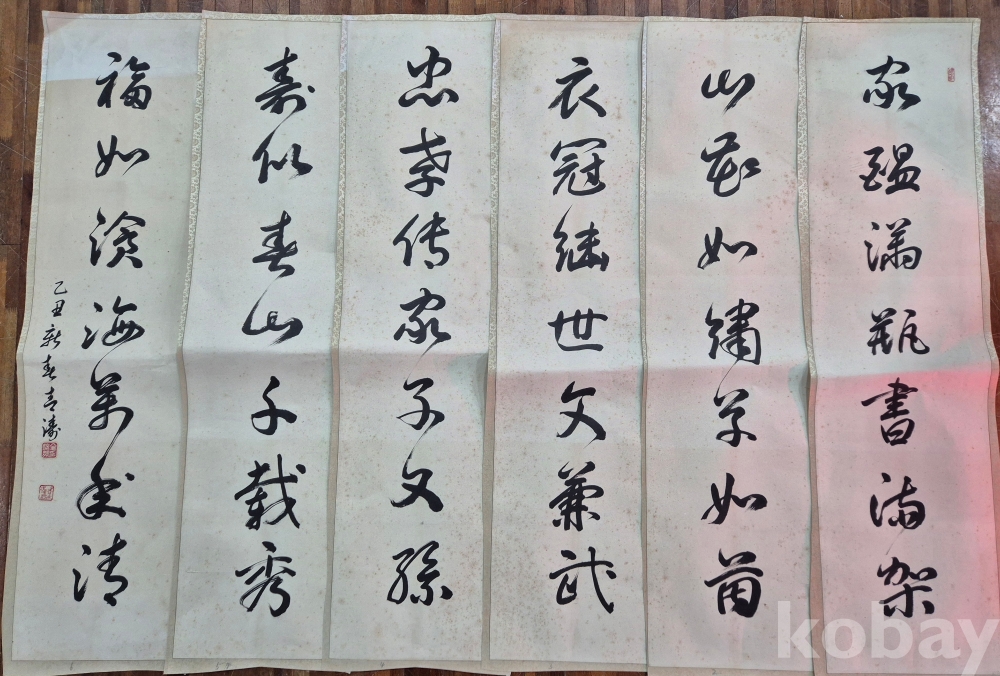 家醖滿瓶書滿架
山花如繡草如茵
衣冠继世文兼武
忠孝传家子又孫
壽似春山千載秀
福如濱海萬年清
乙丑新春青濤
kobay